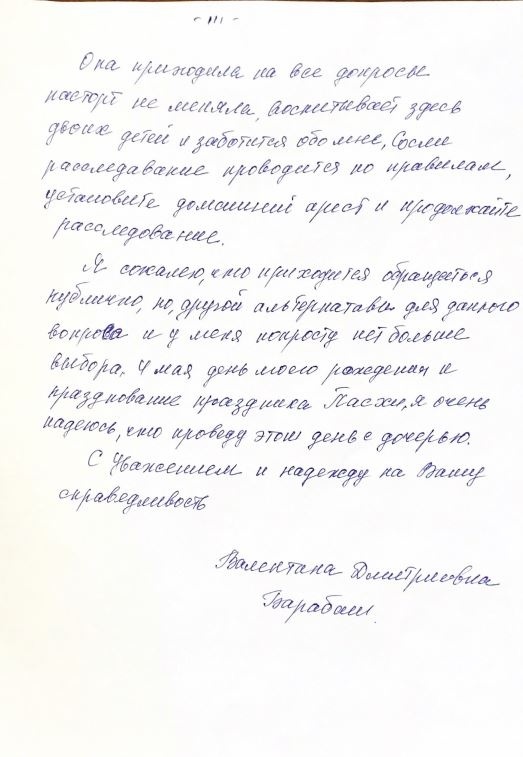 - III -
Она приходила на все допросы
паспорт не меняла, воспитывает здесь
двоих детей и заботится обо мне, Если
расследавание проводится по правилам,
установите домашний арест и продолжайте
расследование.
Я сожалею, что приходится обращаться
публично, но, другой альтернативы для данного
вопроса и у меня попросту нет больше
выбора. 4 мая день моего рождения и
празднование праздника Пасхи, я очень
надеюсь, что проведу этот день с дочерью.
С Уважением и надежду на Вашу
справедливость
Валентина Дмитриевна
Барабаш.